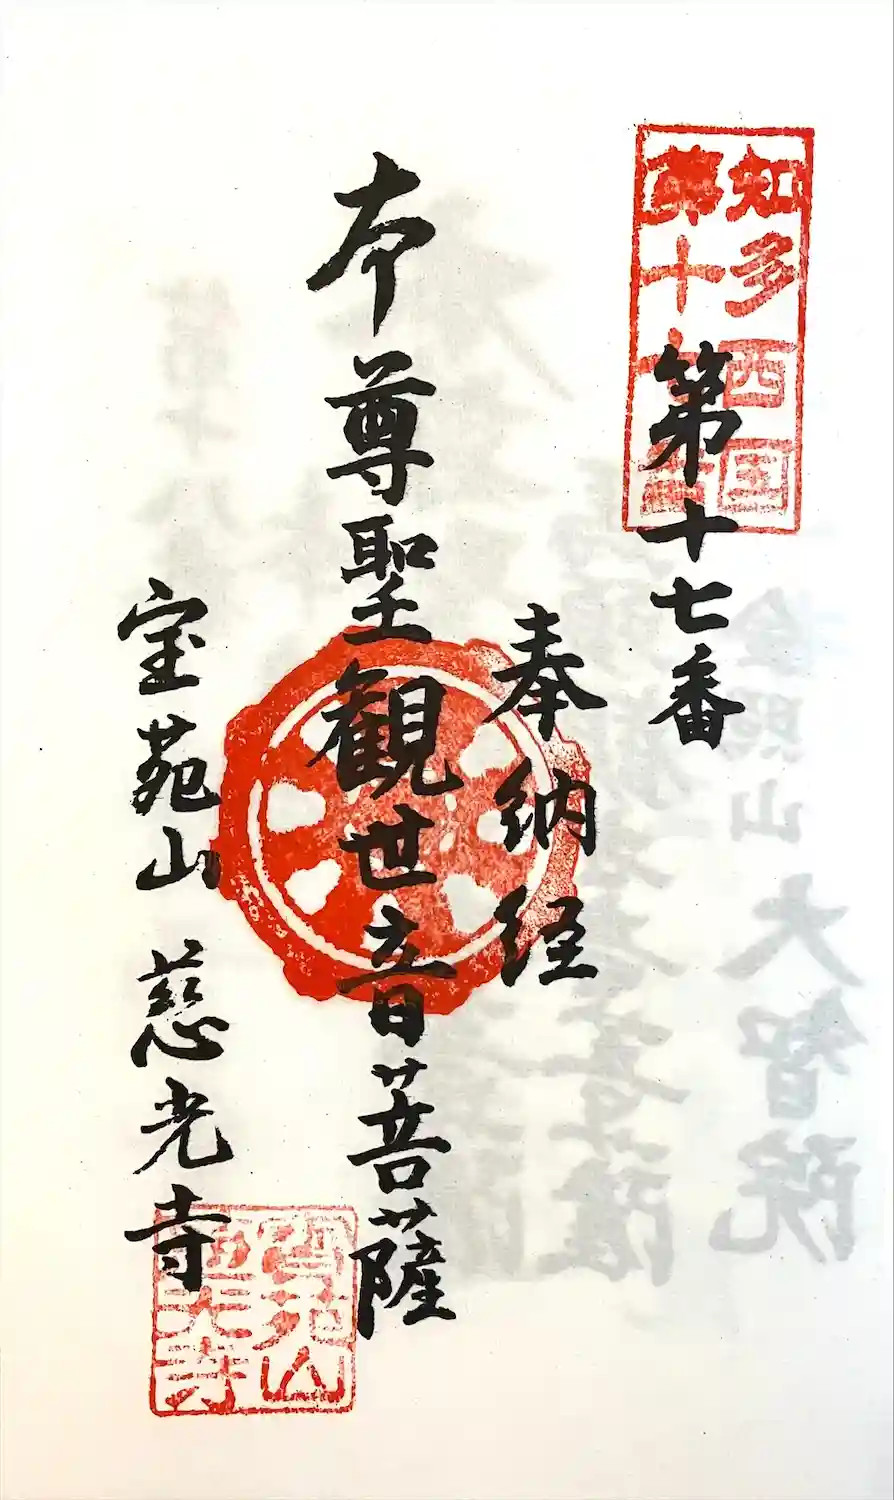 知多四国
第十七番
第十七番
奉納経
本尊聖観世音菩薩
宝苑山 慈光寺